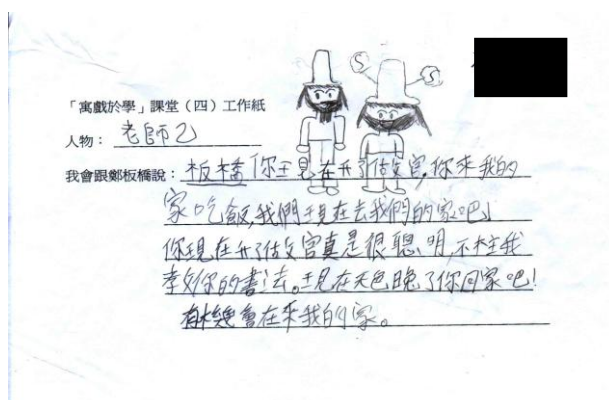 「寓戲於學」課堂（四）工作紙
人物：老師乙
我會跟鄭板橋說：板橋你現在升了做官，你來我的
家吃飯，我們現在去我們的家吧！
你現在升了做官真是很聰明，不枉我
教你的書法。現在天色晚了你回家吧！
有機會在來我的家。
S
S